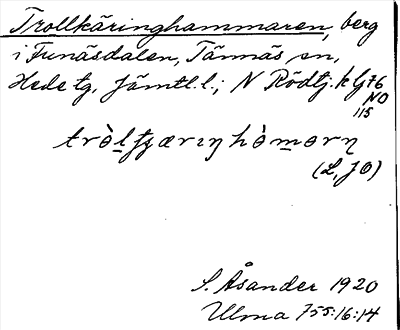 Trollkäringhammaren, berg
i Funäsdalen, Tännäs sn,
Hede tg, Jämtl. l.; N Rödtj. k lj 76
NO
115
tròl̠tʃærɩŋhòm̠ɵrɳ
(L, JÖ)
S. Åsander 1920
Ulma 755:16:14